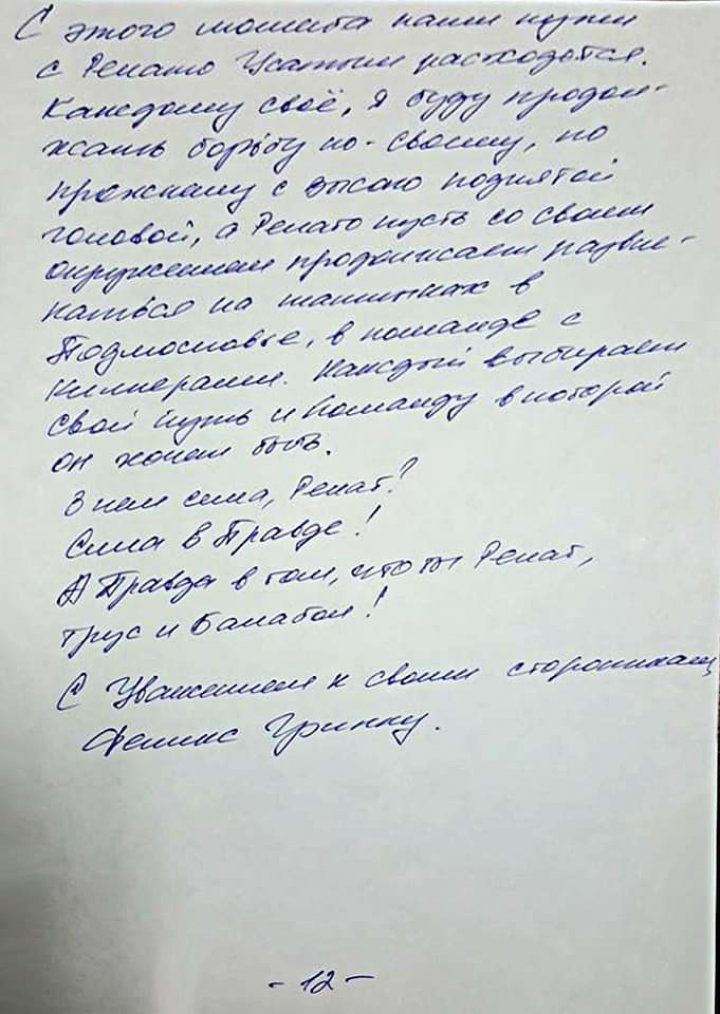 С этого момента наши пути
с Ренато Усатым расходятся.
Каждому своё, я буду продол-
жать борьбу по-своему, по
прежнему с высоко поднятой
головой, а Ренато пусть со своим
окружением продолжает развле-
каться на машинках в
Подмосковье, в команде с
киллерами. Каждый выбирает
свой путь и команду в которой
он хочет быть.
В чем сила, Ренат?
Сила в Правде!
А Правда в том, что ты Ренат,
трус и Балабол!
С Уважением к своим сторонникам
Феликс Гринку.
- 12 -